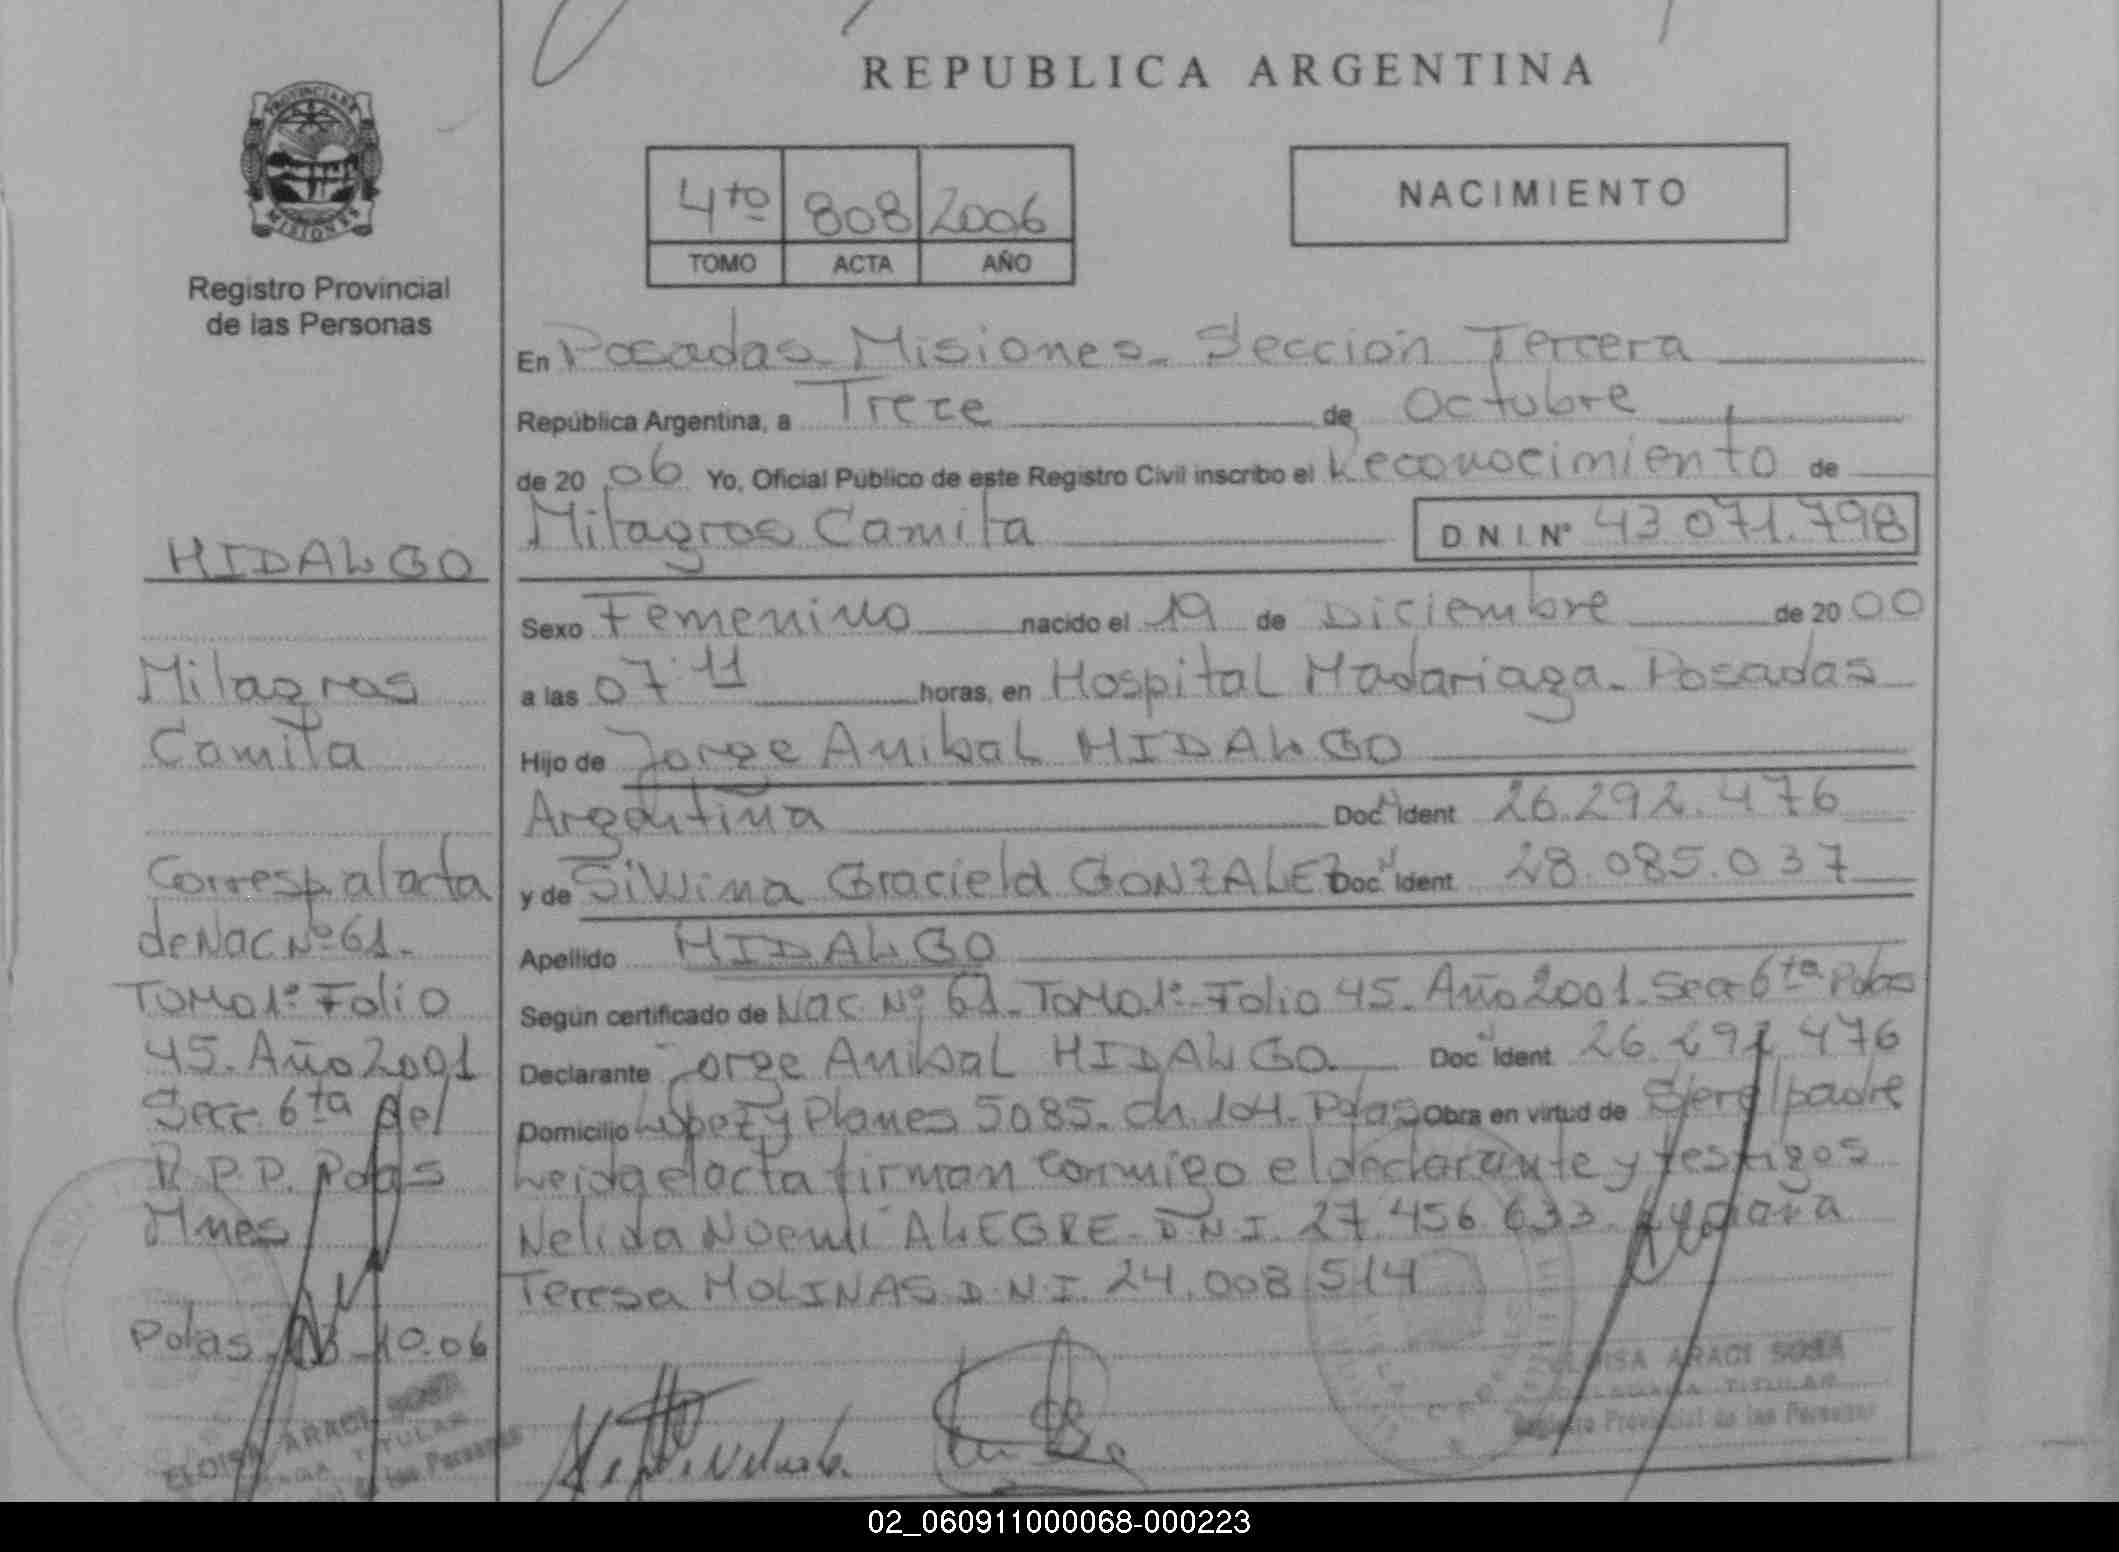 REPUBLICA ARGENTINA
PROVINCIA DE
MISIONES
Registro Provincial
de las Personas
4to 808 2006
TOMO ACTA AÑO
NACIMIENTO
En Posadas - Misiones - Sección Tercera
República Argentina, a Trece de octubre
de 20 06 Yo, Oficial Público de este Registro Civil inscribo el Reconocimiento de
Milagros Camila
D N I Nº 43.071.798
Sexo Femenino nacido el 19 de Diciembre de 20 00
a las 07:11 horas, en Hospital Madariaga - Posadas
Hijo de Jorge Anibal HIDALGO
Argentina Doc Ident 26.292.476
y de Silvina Graciela GONZALEZ Doc Ident 28.085.037
Apellido HIDALGO
Según certificado de Nac. Nº 61. Tomo 1º. Folio 45. Año 2001. Secc 6ta Pdas
Declarante Jorge Anibal HIDALGO Doc Ident 26.292.476
Domicilio Lopez y Planes 5085. Ch 104. Pdas Obra en virtud de Ser el padre
Leida el acta firman conmigo el declarante y testigos
Nelida Noemi ALEGRE - D.N.I. 27.456.633.
Teresa MOLINAS D.N.I. 24.008.514
HIDALGO
Milagros
Camila
Corresp al acta
de Nac Nº 61.
Tomo 1º Folio
45. Año 2001
Secc. 6ta del
R.P.P. Pdas
Mnes
Pdas. 13-10.06
ELOISA ARACI SOSA
TITULAR
de las Personas
ELOISA ARACI SOSA
TITULAR
Registro Provincial de las Personas
02_060911000068-000223